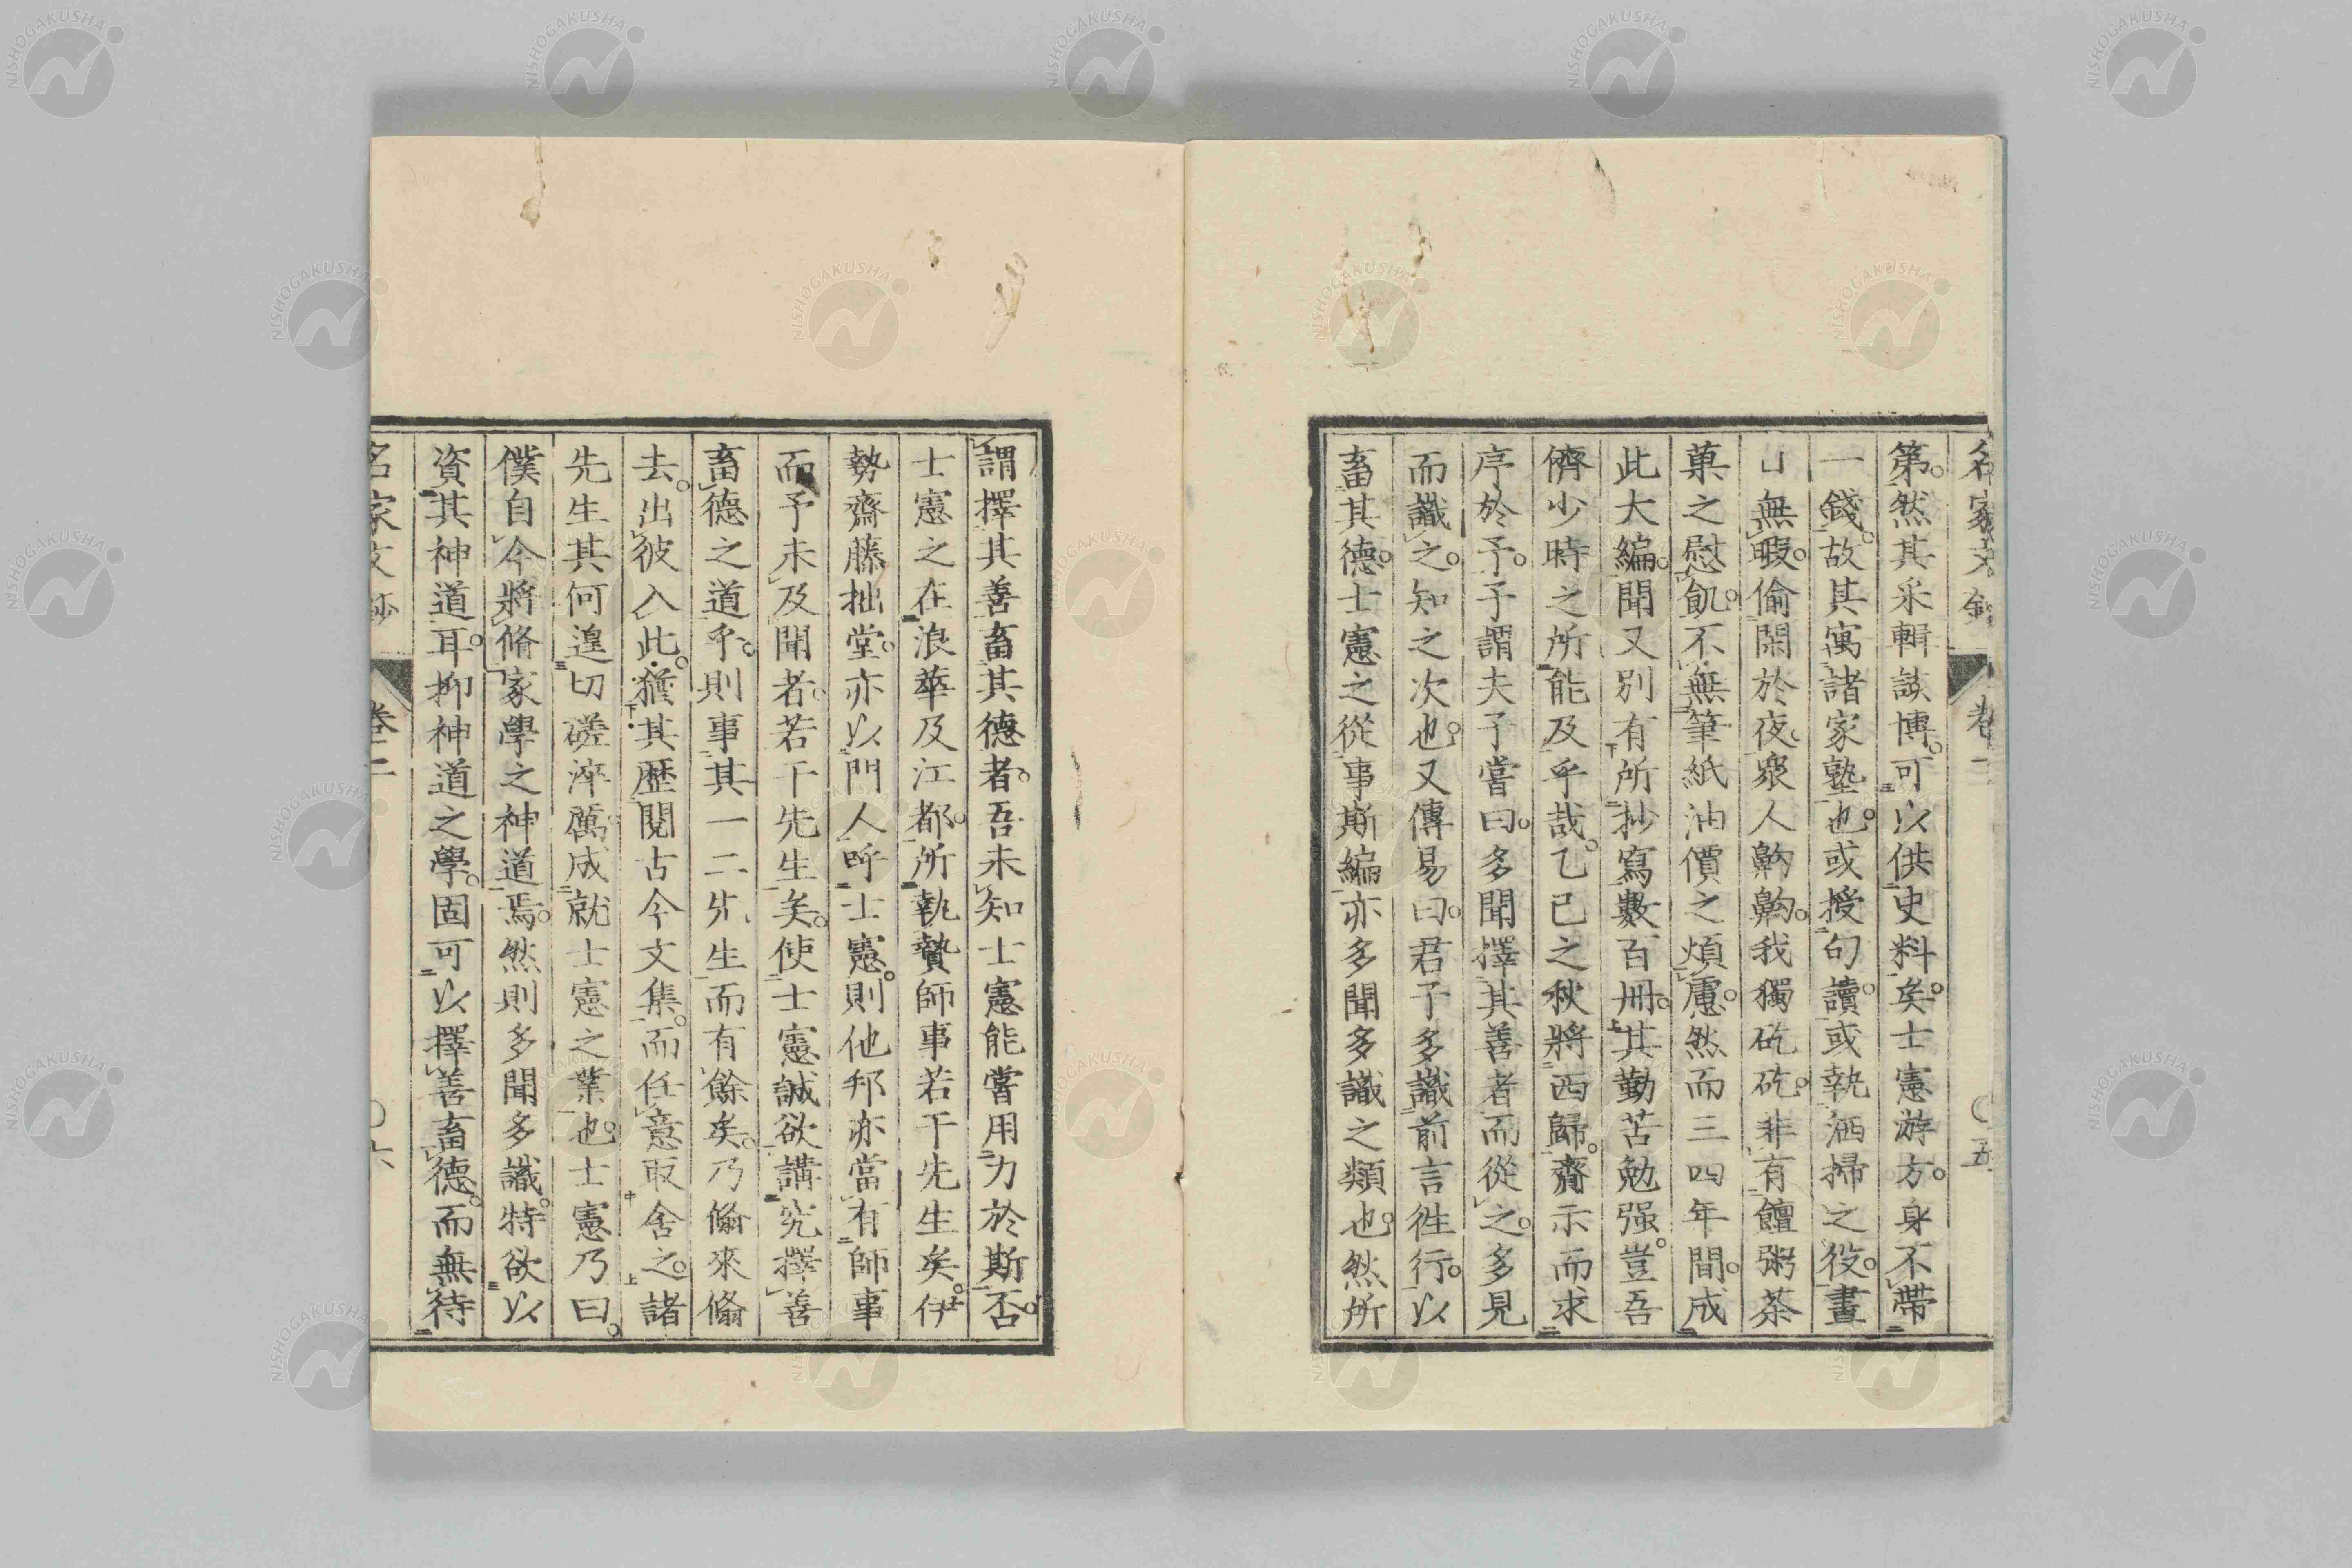 名家文鈔 卷二 〇五
第。然其采輯該博。可以供史料矣。士憲游方。身不帶
一錢。故其寓諸家塾也。或授句讀。或執洒掃之役。晝
日無暇。偷閑於夜。衆人齁齁。我獨矻矻。非有饘粥茶
菓之慰飢。不無筆紙油價之煩慮。然而三四年間。成
此大編。聞又別有所抄寫數百冊。其勤苦勉强。豈吾
儕少時之所能及乎哉。乙巳之秋將西歸。齎示而求
序於予。予謂夫子嘗曰。多聞擇其善者而從之。多見
而識之。知之次也。又傳易曰。君子多識前言徃行。以
畜其德。士憲之從事斯編。亦多聞多識之類也。然所
謂擇其善畜其德者。吾未知士憲能嘗用力於斯否。
士憲之在浪華及江都。所執贄師事若干先生矣。伊
勢齋藤拙堂。亦以門人呼士憲。則他邦亦當有師事
而予未及聞者。若干先生矣。使士憲誠欲講究擇善
畜德之道乎。則事其一二先生而有餘矣。乃倏來倏
去。出彼入此。猶其歷閱古今文集。而任意取舍之。諸
先生其何遑切磋淬厲成就士憲之業也。士憲乃曰。
僕自今將脩家學之神道焉。然則多聞多識。特欲以
資其神道耳。抑神道之學。固可以擇善畜德。而無待
名家文鈔 卷二 〇六